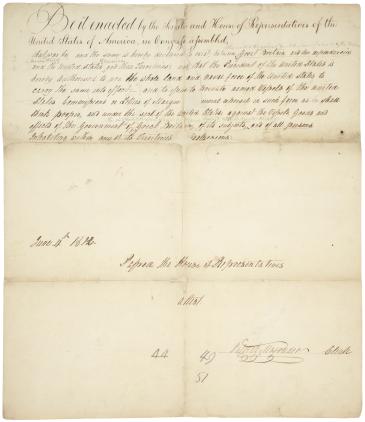 Be it enacted by the Senate and House of Representatives of the
United States of America, in Congress assembled,
that war be and the same is hereby declared to exist between Great Britain and the dependencies
and the United States and their Territories; and that the President of the United States is
hereby authorised to use the whole land and naval force of the United States to
carry the same into effect and to issue to private armed vessels of the United
States Commissions or Letters of Marque and general reprisal in such form as he shall
think proper, and under the seal of the United States against the vessels goods and
effects of the Government of Great Britain, of its subjects, and of all persons
inhabiting within any of its Territories
June 4th 1812
Passed the House of Representatives
attest
44
49
Clerk
51